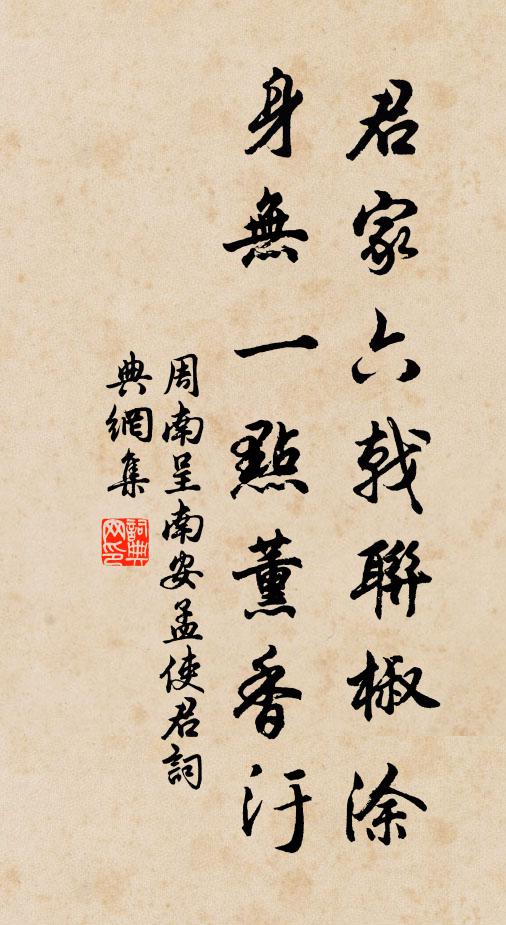 君家六戟聯椒涂
身無一點薰香汙
周南呈南安孟使君詞
典網集
詞典網印